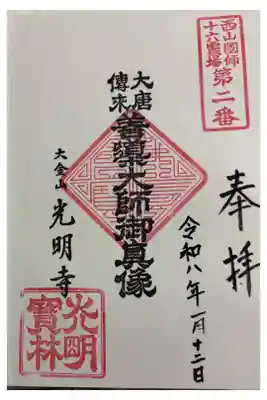 西山國師
十六霊場
第二番
奉拝
令和八年一月十二日
大唐
傳來
善導大師御真像
大金山
光明寺
光明
寶林